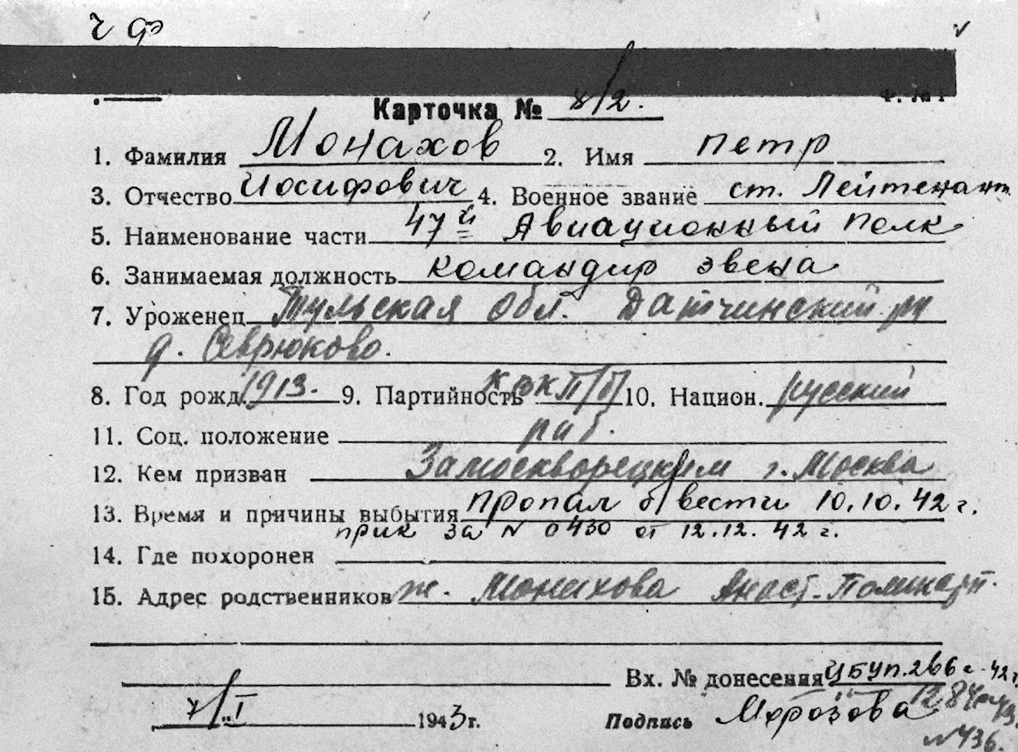 ч ф
Карточка № 8/2.
1. Фамилия Монахов 2. Имя Петр
3. Отчество Иосифович 4. Военное звание ст. Лейтенант
5. Наименование части 47й Авиационный Полк
6. Занимаемая должность командир звена
7. Уроженец Тульская обл. Датчинский
д. Севрюково.
8. Год рожд. 1913. 9. Партийность 10. Национ. русский
11. Соц. положение раб.
12. Кем призван Замоскворецким г. Москва
13. Время и причины выбытия пропал б/вести 10.10.42 г.
прик за N 0430 от 12.12.42 г.
14. Где похоронен
15. Адрес родственников ж. Монахова Анаст.
Вх. № донесения 42 г.
7/I 1943 г. Подпись Морозова